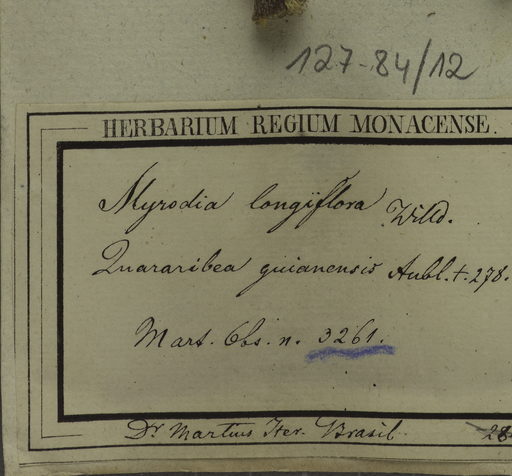 127-84/12
HERBARIUM REGIUM MONACENSE.
Myrodia longiflora Willd.
Quararibea guianensis Aubl. t. 278.
Mart. Obs. n. 3261.
Dr. Martius Iter. Brasil.